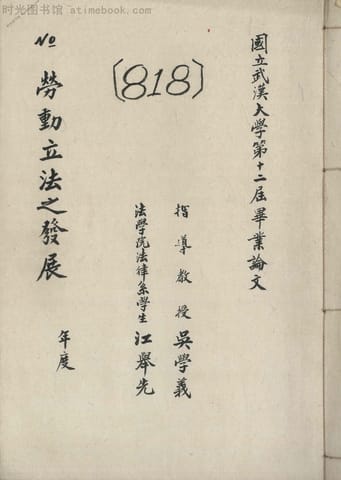 时光图书馆 atimebook.com
國立武漢大学第十二屆畢業論文
〔818〕
指導教授 吳學義
法學院法律系學生 江舉先
№ 勞動立法之發展
年度